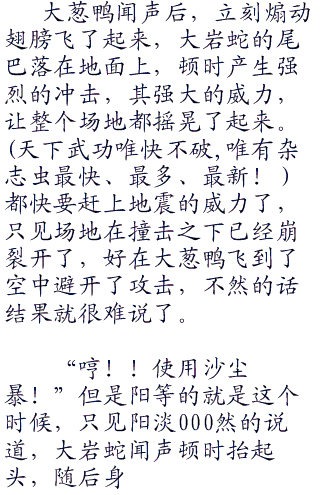 大葱鸭闻声后，立刻煽动
翅膀飞了起来，大岩蛇的尾
巴落在地面上，顿时产生强
烈的冲击，其强大的威力，
让整个场地都摇晃了起来。
(天下武功唯快不破,唯有杂
志虫最快、最多、最新！)
都快要赶上地震的威力了，
只见场地在撞击之下已经崩
裂开了，好在大葱鸭飞到了
空中避开了攻击，不然的话
结果就很难说了。
“哼！！使用沙尘
暴！”但是阳等的就是这个
时候，只见阳淡000然的说
道，大岩蛇闻声顿时抬起
头，随后身